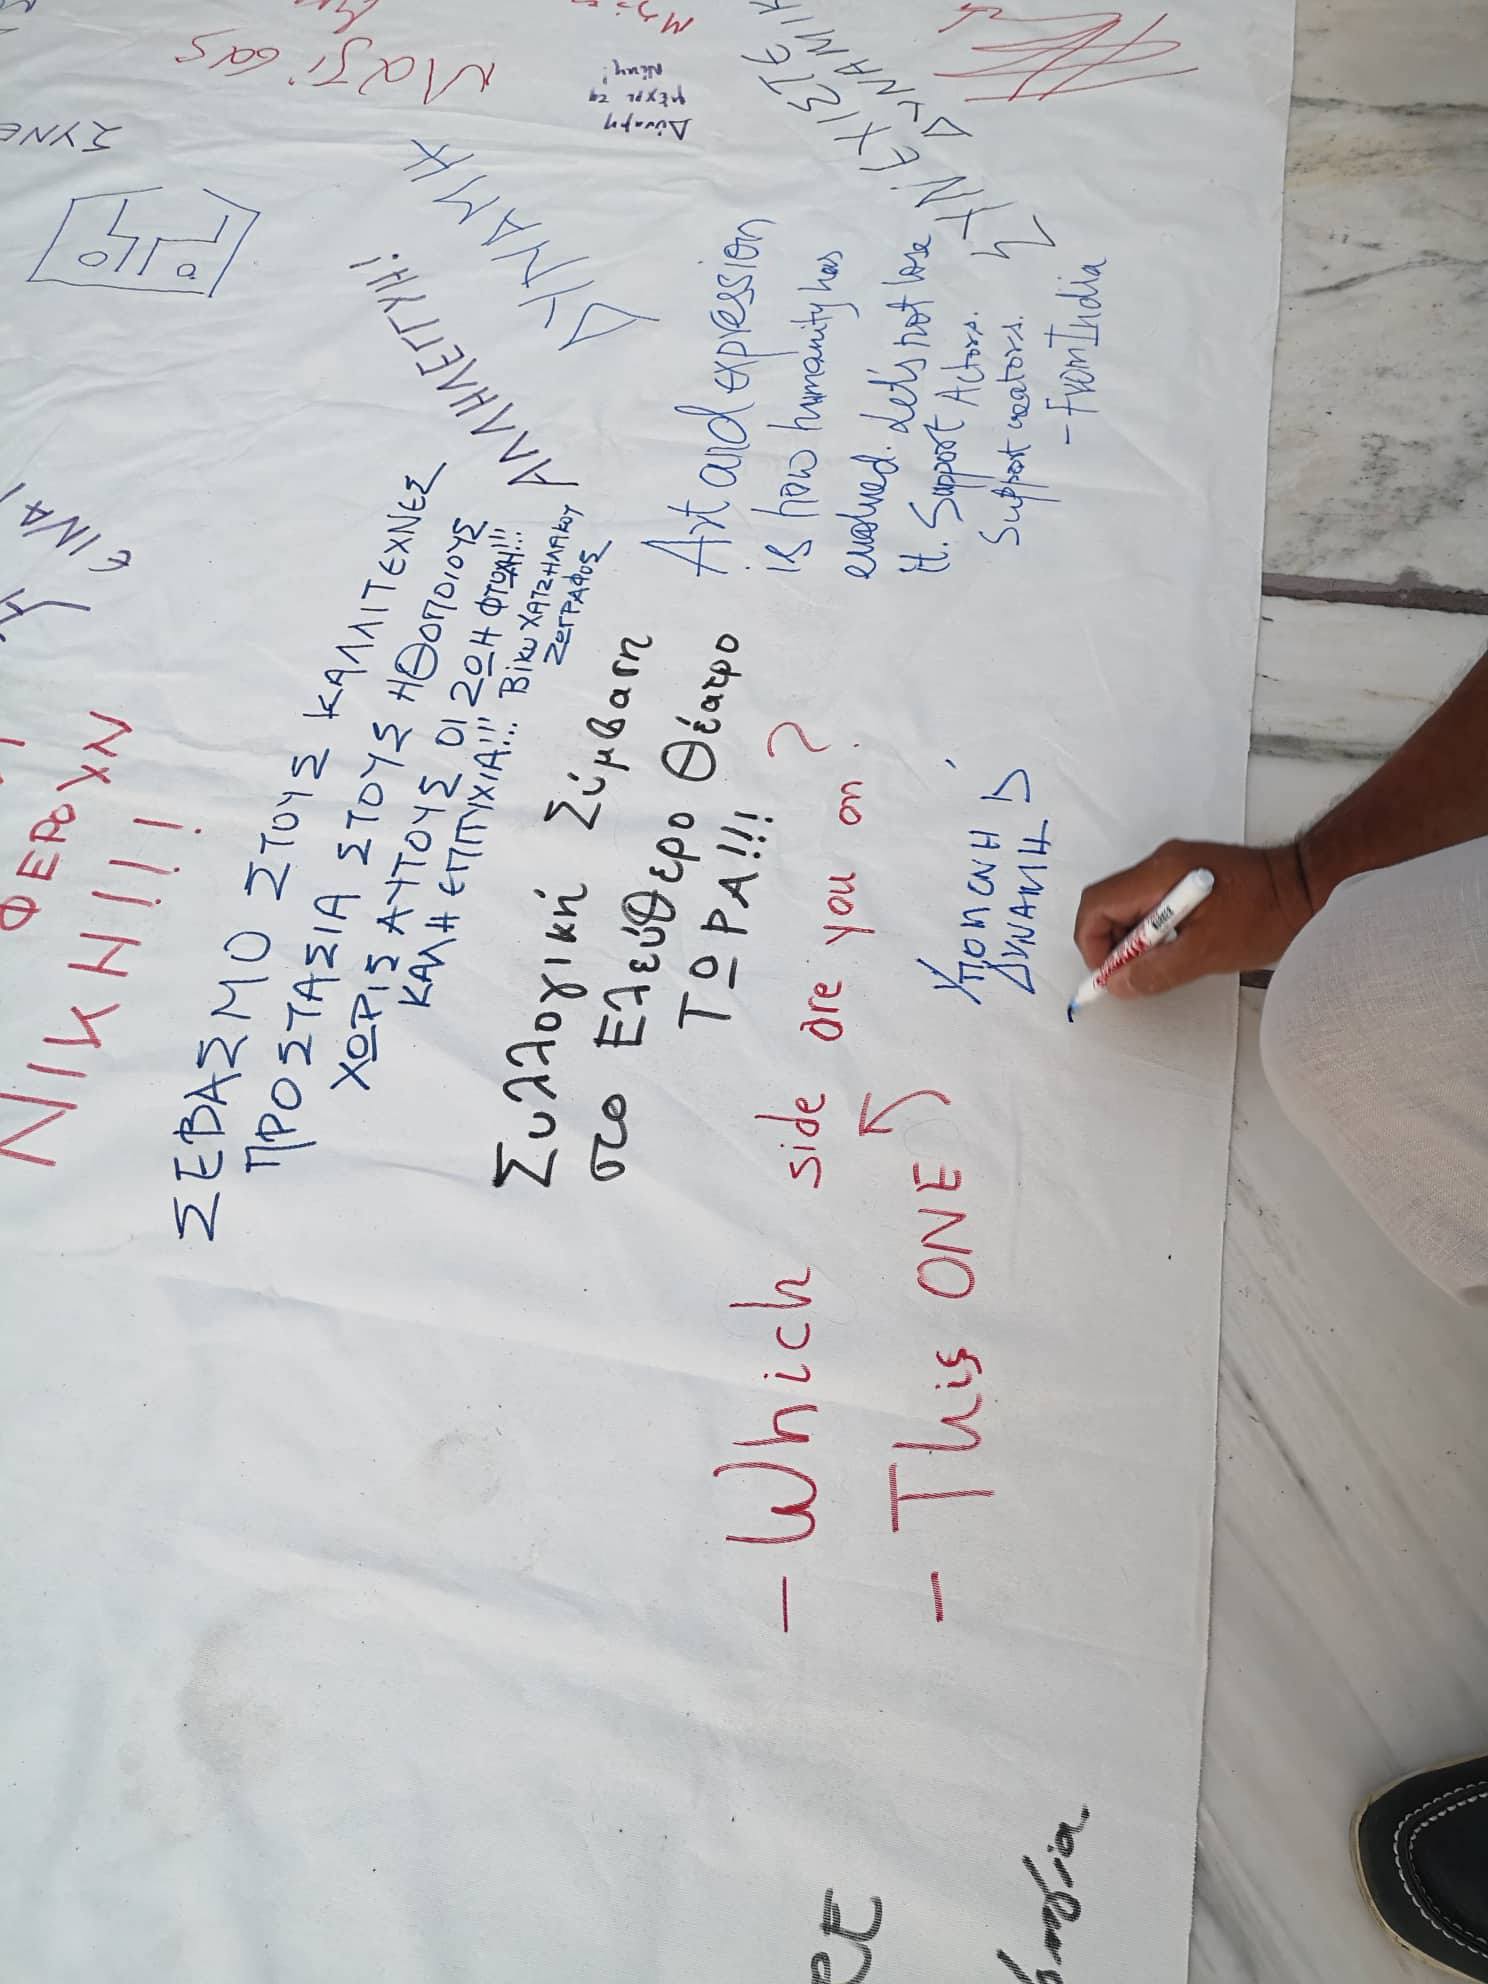 Μαζί σας
Δύναμη
μέχρι τη
Νίκη!
ΔΥΝΑΜΗ
ΑΛΛΗΛΕΓΓΥΗ!
ΣΥΝΕΧΙΣΤΕ
ΔΥΝΑΜΙΚ
ΦΕΡΟΥΝ
ΝΙΚΗ!!!
ΣΕΒΑΣΜΟ ΣΤΟΥΣ ΚΑΛΛΙΤΕΧΝΕΣ
ΠΡΟΣΤΑΣΙΑ ΣΤΟΥΣ ΗΘΟΠΟΙΟΥΣ
ΧΩΡΙΣ ΑΥΤΟΥΣ ΟΙ ΖΩΗ ΦΤΩΧΗ!!!
ΚΑΛΗ ΕΠΙΤΥΧΙΑ!!! Βίκυ ΧΑΤΖΗΛΑΚΟΥ
ΖΩΓΡΑΦΟΣ
Συλλογική Σύμβαση
στο Ελεύθερο Θέατρο
ΤΩΡΑ!!!
Art and expression
is how humanity has
evolved. Let's not lose
it. Support Actors.
Support creators.
- From India
- Which side are you on?
- This ONE
Υπομονή
ΔΥΝΑΜΗ